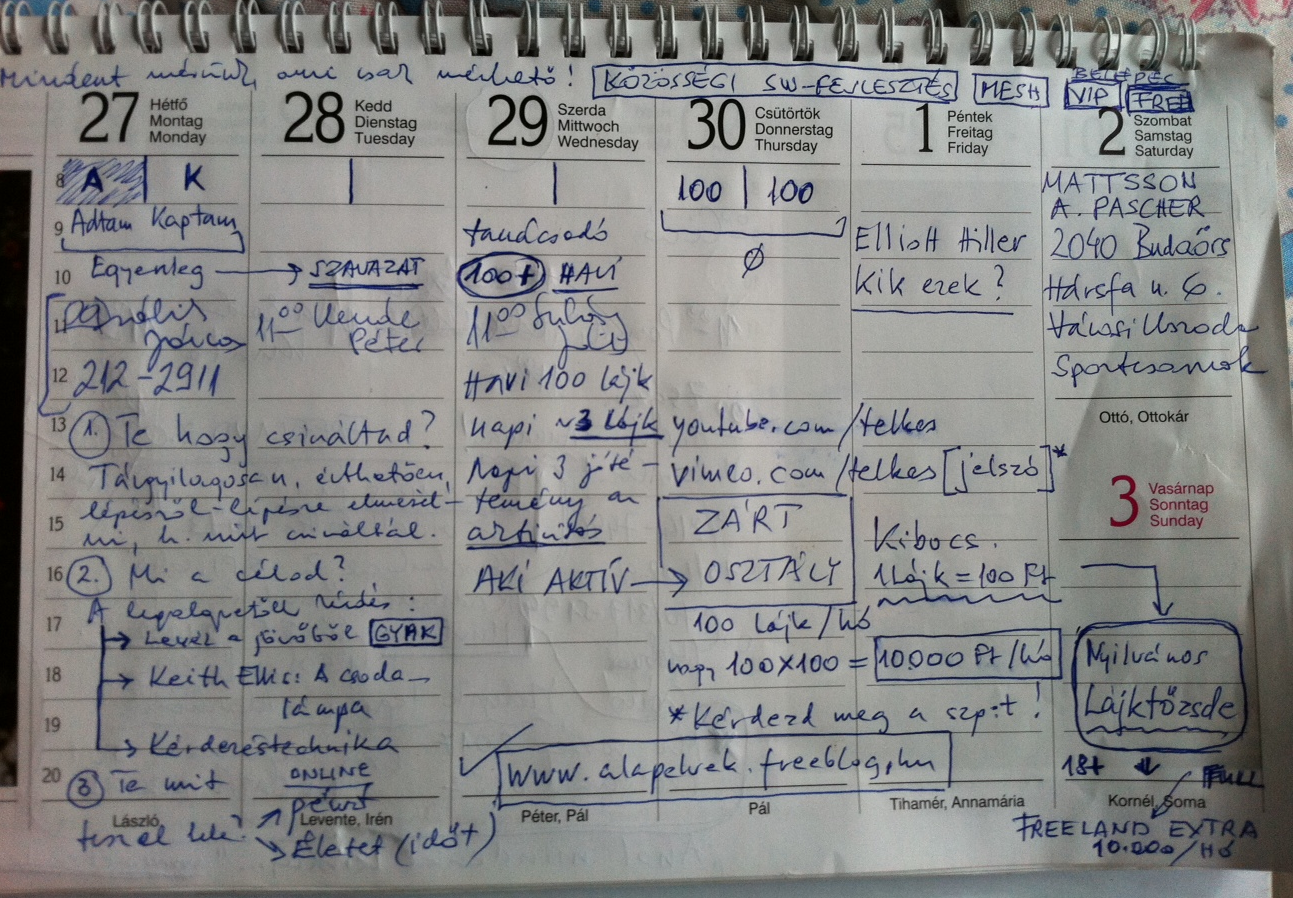 Mindent mérünk, ami csak mérhető! KÖZÖSSÉGI SW-FEJLESZTÉS MESH BELÉPÉS VIP FREE
27 Hétfő Montag Monday
8 A | K
9 Adtam Kaptam
10 Egyenleg → SZAVAZAT
11 János
12 212-2911
13 1. Te hogy csináltad?
14 Tárgyilagosan, érthetően,
15 lépésről-lépésre elmesél-
ni, h. mit csináltál.
16 2. Mi a célod?
A legalapvetőbb kérdés:
17 → Levél a jövőből GYAK
18 → Keith Ellis: A csoda-
19 lámpa
→ Kérdezéstechnika
20 3 Te mit
teszel bele? ONLINE pénzt
Életet (időt)
László
28 Kedd Dienstag Tuesday
11 00 Vende Péter
Levente, Irén
29 Szerda Mittwoch Wednesday
tanácsadó
100+ HAVI
11 00
Havi 100 lájk
napi ~3 lájk
Napi 3 jóté-
temény an
AKI AKTÍV →
Péter, Pál
30 Csütörtök Donnerstag Thursday
100 | 100
Ø
youtube.com/telkes
vimeo.com/telkes [jelszó]*
ZÁRT
OSZTÁLY
100 lájk/hó
vagy 100x100 = 10000 Ft/hó
*Kérdezd meg a szp:t!
www.alapelvek.freeblog.hu
Pál
1 Péntek Freitag Friday
Elliott Hiller
Kik ezek?
Kibocs.
1 Lájk = 100 Ft
Tihamér, Annamária
2 Szombat Samstag Saturday
MATTSSON
A. PASCHER
2040 Budaörs
Hársfa u. 6.
Városi Uszoda
Sportcsarnok
Ottó, Ottokár
3 Vasárnap Sonntag Sunday
Nyilvános
Lájktőzsde
18+ FULL
Kornél, Soma
FREELAND EXTRA
10.000/HÓ